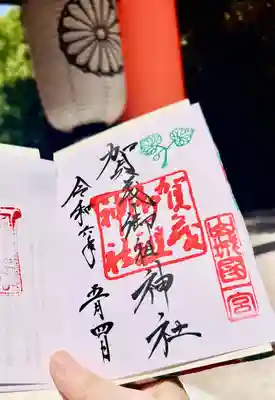 山城國一宮
賀茂御祖神社
賀茂
御祖
神社
令和六年
五月四日